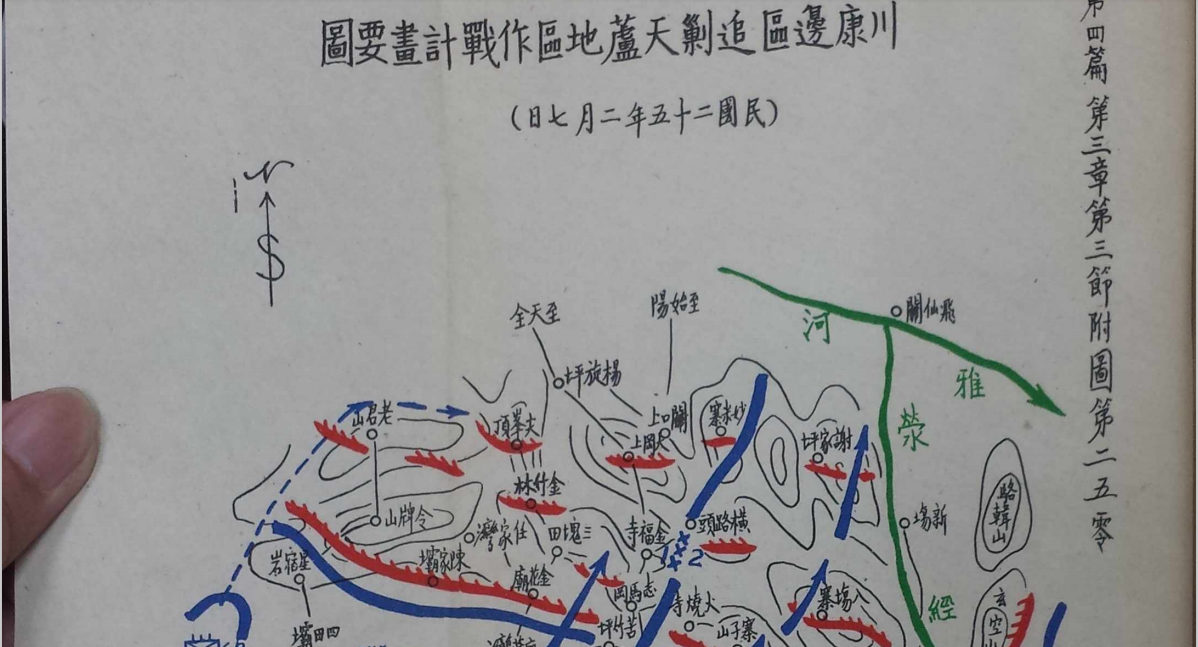 川康邊區追剿天蘆地區作戰計畫要圖
(民國二十五年二月七日)
第四篇第三章第三節附圖第二五零
N
至天全
至始陽
飛仙關
雅
河
楊旋坪
老君山
關口上
謝家坪
滎
金竹林
令牌山
任家灣
三塊田
金福寺
橫路頭
新場
星宿岩
陳家壩
金花廟
志馬岡
火燒寺
八塲寨
經
苦竹坪
寨子山
四田壩
xxx 2